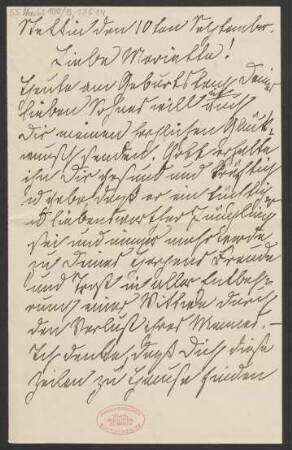 Stettin den 10ten September.
Liebe Marietta!
Heute am Geburtstag Deines
lieben Sohnes will auch
Dir meinen herzlichen Glück-
wunsch senden. Gott erhalte
ihn Dir gesund und
u gebe daß er ein tüchtiger
u liebenswerther Jüngling
sei und immer mehr werde
zu Deines Herzens Freude
und Trost in aller Entbeh-
rung einer Wittwe durch
den Verlust ihres Mannes. –
Ich denke, daß Dich diese
Zeilen zu Hause finden